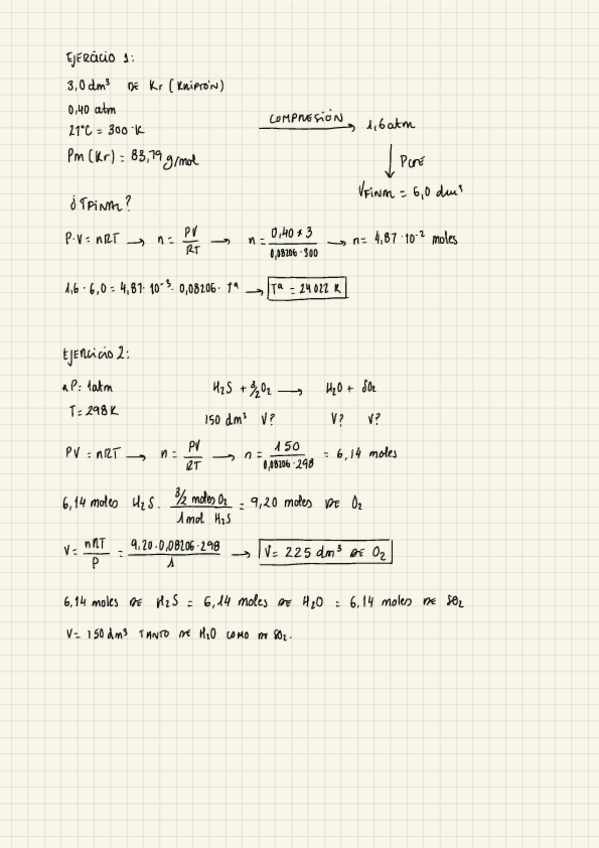 EJERCICIO 1:
3,0 dm³ DE Kr (KRIPTÓN)
0,40 atm
27°C = 300 K
Pm (Kr) = 83,79 g/mol
COMPRESIÓN → 1,6 atm
↓ P CTE
V FINAL = 6,0 dm³
¿T FINAL?
P·V = nRT → n = PV/RT → n = 0,40 * 3 / 0,08206 · 300 → n = 4,87·10⁻² moles
1,6 · 6,0 = 4,87 · 10⁻³ · 0,08206 · Tª → Tª = 24022 K
EJERCICIO 2:
P = 1 atm
T = 298 K
H₂S + 3/2 O₂ → H₂O + SO₂
150 dm³ V? V? V?
PV = nRT → n = PV/RT → n = 150 / 0,08206 · 298 = 6,14 moles
6,14 moles H₂S · 3/2 moles O₂ / 1 mol H₂S = 9,20 moles DE O₂
V = nRT/P = 9,20 · 0,08206 · 298 / 1 → V = 225 dm³ DE O₂
6,14 moles DE H₂S = 6,14 moles DE H₂O = 6,14 moles DE SO₂
V = 150 dm³ TANTO DE H₂O COMO DE SO₂.